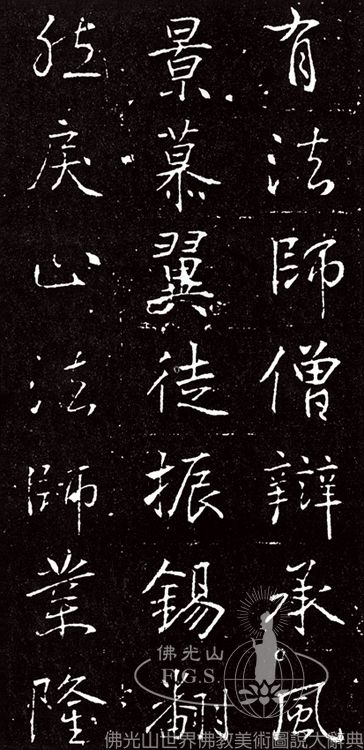 有法師僧辯承風
景慕翼徒振錫翻
然戾止法師業隆
佛光山
F.G.S.
佛光山世界佛教美術圖說大辭典